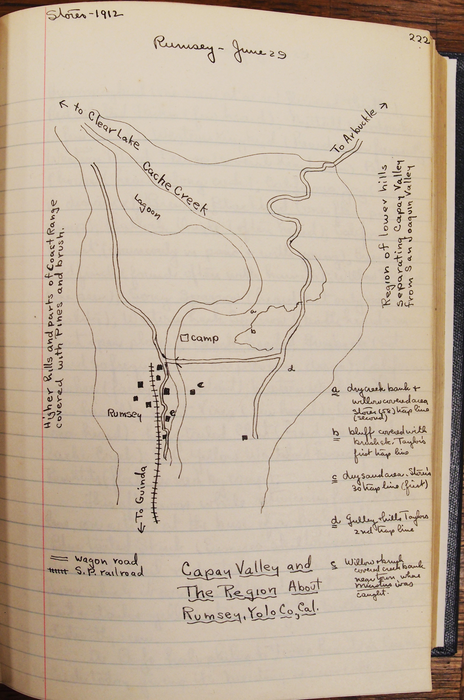 Storer-1912
222
Rumsey - June 29
← to Clear Lake
Cache Creek
Lagoon
To Arbuckle →
Higher hills and parts of Coast Range
covered with Pines and brush.
Region of lower hills
Separating Capay Valley
from San Joaquin Valley
a
b
camp
d
e
c
Rumsey
← To Guinda
a dry creek bank +
willow covered area,
Storer's trap line
(second)
b bluff covered with
brush &c. Taylor's
first trap line
c dry sand area, Storer's
30 trap line (first)
d Gulley + hills Taylor's
2nd trap line
Willow + brush
covered creek bank
near town where
Microtus was
caught.
wagon road
S.P. railroad
Capay Valley and
The Region About
Rumsey, Yolo Co, Cal.